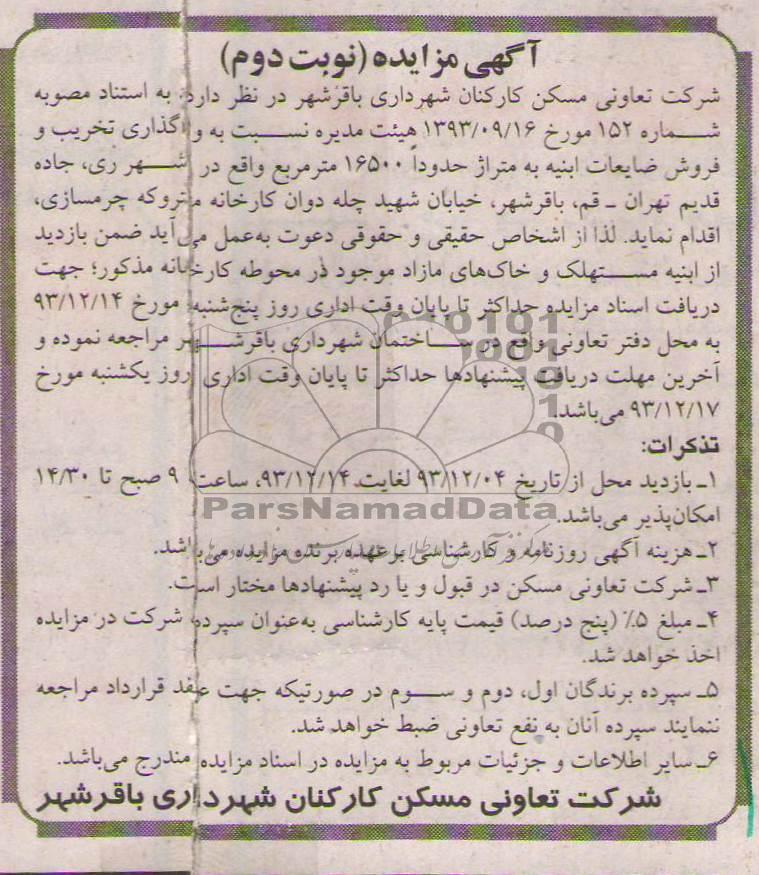 آگهی مزایده (نوبت دوم)
شرکت تعاونی مسکن کارکنان شهرداری باقرشهر در نظر دارد: به استناد مصوبه
شماره ۱۵۲ مورخ ۱۳۹۳/۰۹/۱۶ هیئت مدیره نسبت به واگذاری تخریب و
فروش ضایعات ابنیه به متراژ حدوداً ۱۶۵۰۰ مترمربع واقع در شهر ری، جاده
قدیم تهران ـ قم، باقرشهر، خیابان شهید چله دوان کارخانه متروکه چرمسازی،
اقدام نماید. لذا از اشخاص حقیقی و حقوقی دعوت به‌عمل می‌آید ضمن بازدید
از ابنیه مستهلک و خاک‌های مازاد موجود در محوطه کارخانه مذکور؛ جهت
دریافت اسناد مزایده حداکثر تا پایان وقت اداری روز پنج‌شنبه مورخ ۹۳/۱۲/۱۴
به محل دفتر تعاونی واقع در ساختمان شهرداری باقرشهر مراجعه نموده و
آخرین مهلت دریافت پیشنهادها حداکثر تا پایان وقت اداری روز یکشنبه مورخ
۹۳/۱۲/۱۷ می‌باشد.
تذکرات:
۱ـ بازدید محل از تاریخ ۹۳/۱۲/۰۴ لغایت ۹۳/۱۲/۱۴، ساعت ۹ صبح تا ۱۴/۳۰
ParsNamadData
امکان‌پذیر می‌باشد.
۲ـ هزینه آگهی روزنامه و کارشناسی برعهده برنده مزایده می‌باشد.
۳ـ شرکت تعاونی مسکن در قبول و یا رد پیشنهادها مختار است.
۴ـ مبلغ ۵٪ (پنج درصد) قیمت پایه کارشناسی به‌عنوان سپرده شرکت در مزایده
اخذ خواهد شد.
۵ـ سپرده برندگان اول، دوم و سوم در صورتیکه جهت عقد قرارداد مراجعه
ننمایند سپرده آنان به نفع تعاونی ضبط خواهد شد.
۶ـ سایر اطلاعات و جزئیات مربوط به مزایده در اسناد مزایده مندرج می‌باشد.
شرکت تعاونی مسکن کارکنان شهرداری باقرشهر